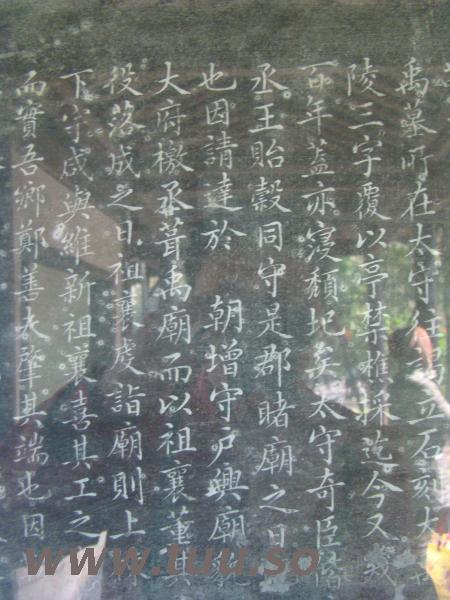 禹墓所在太守往謁立石刻大
陵三字覆以亭禁樵採迄今又幾
百年蓋亦寢頹圮矣太守奇臣
丞王貽縠同守是郡睹廟之日
也因請達於 朝增守戶興廟
大府檄丞葺禹廟而以祖襄董其
役落成之日祖襄虔詣廟則上
下宇咸與維新祖襄喜其工之
而實吾鄉鄭善夫肇其端也因
www.tuu.so